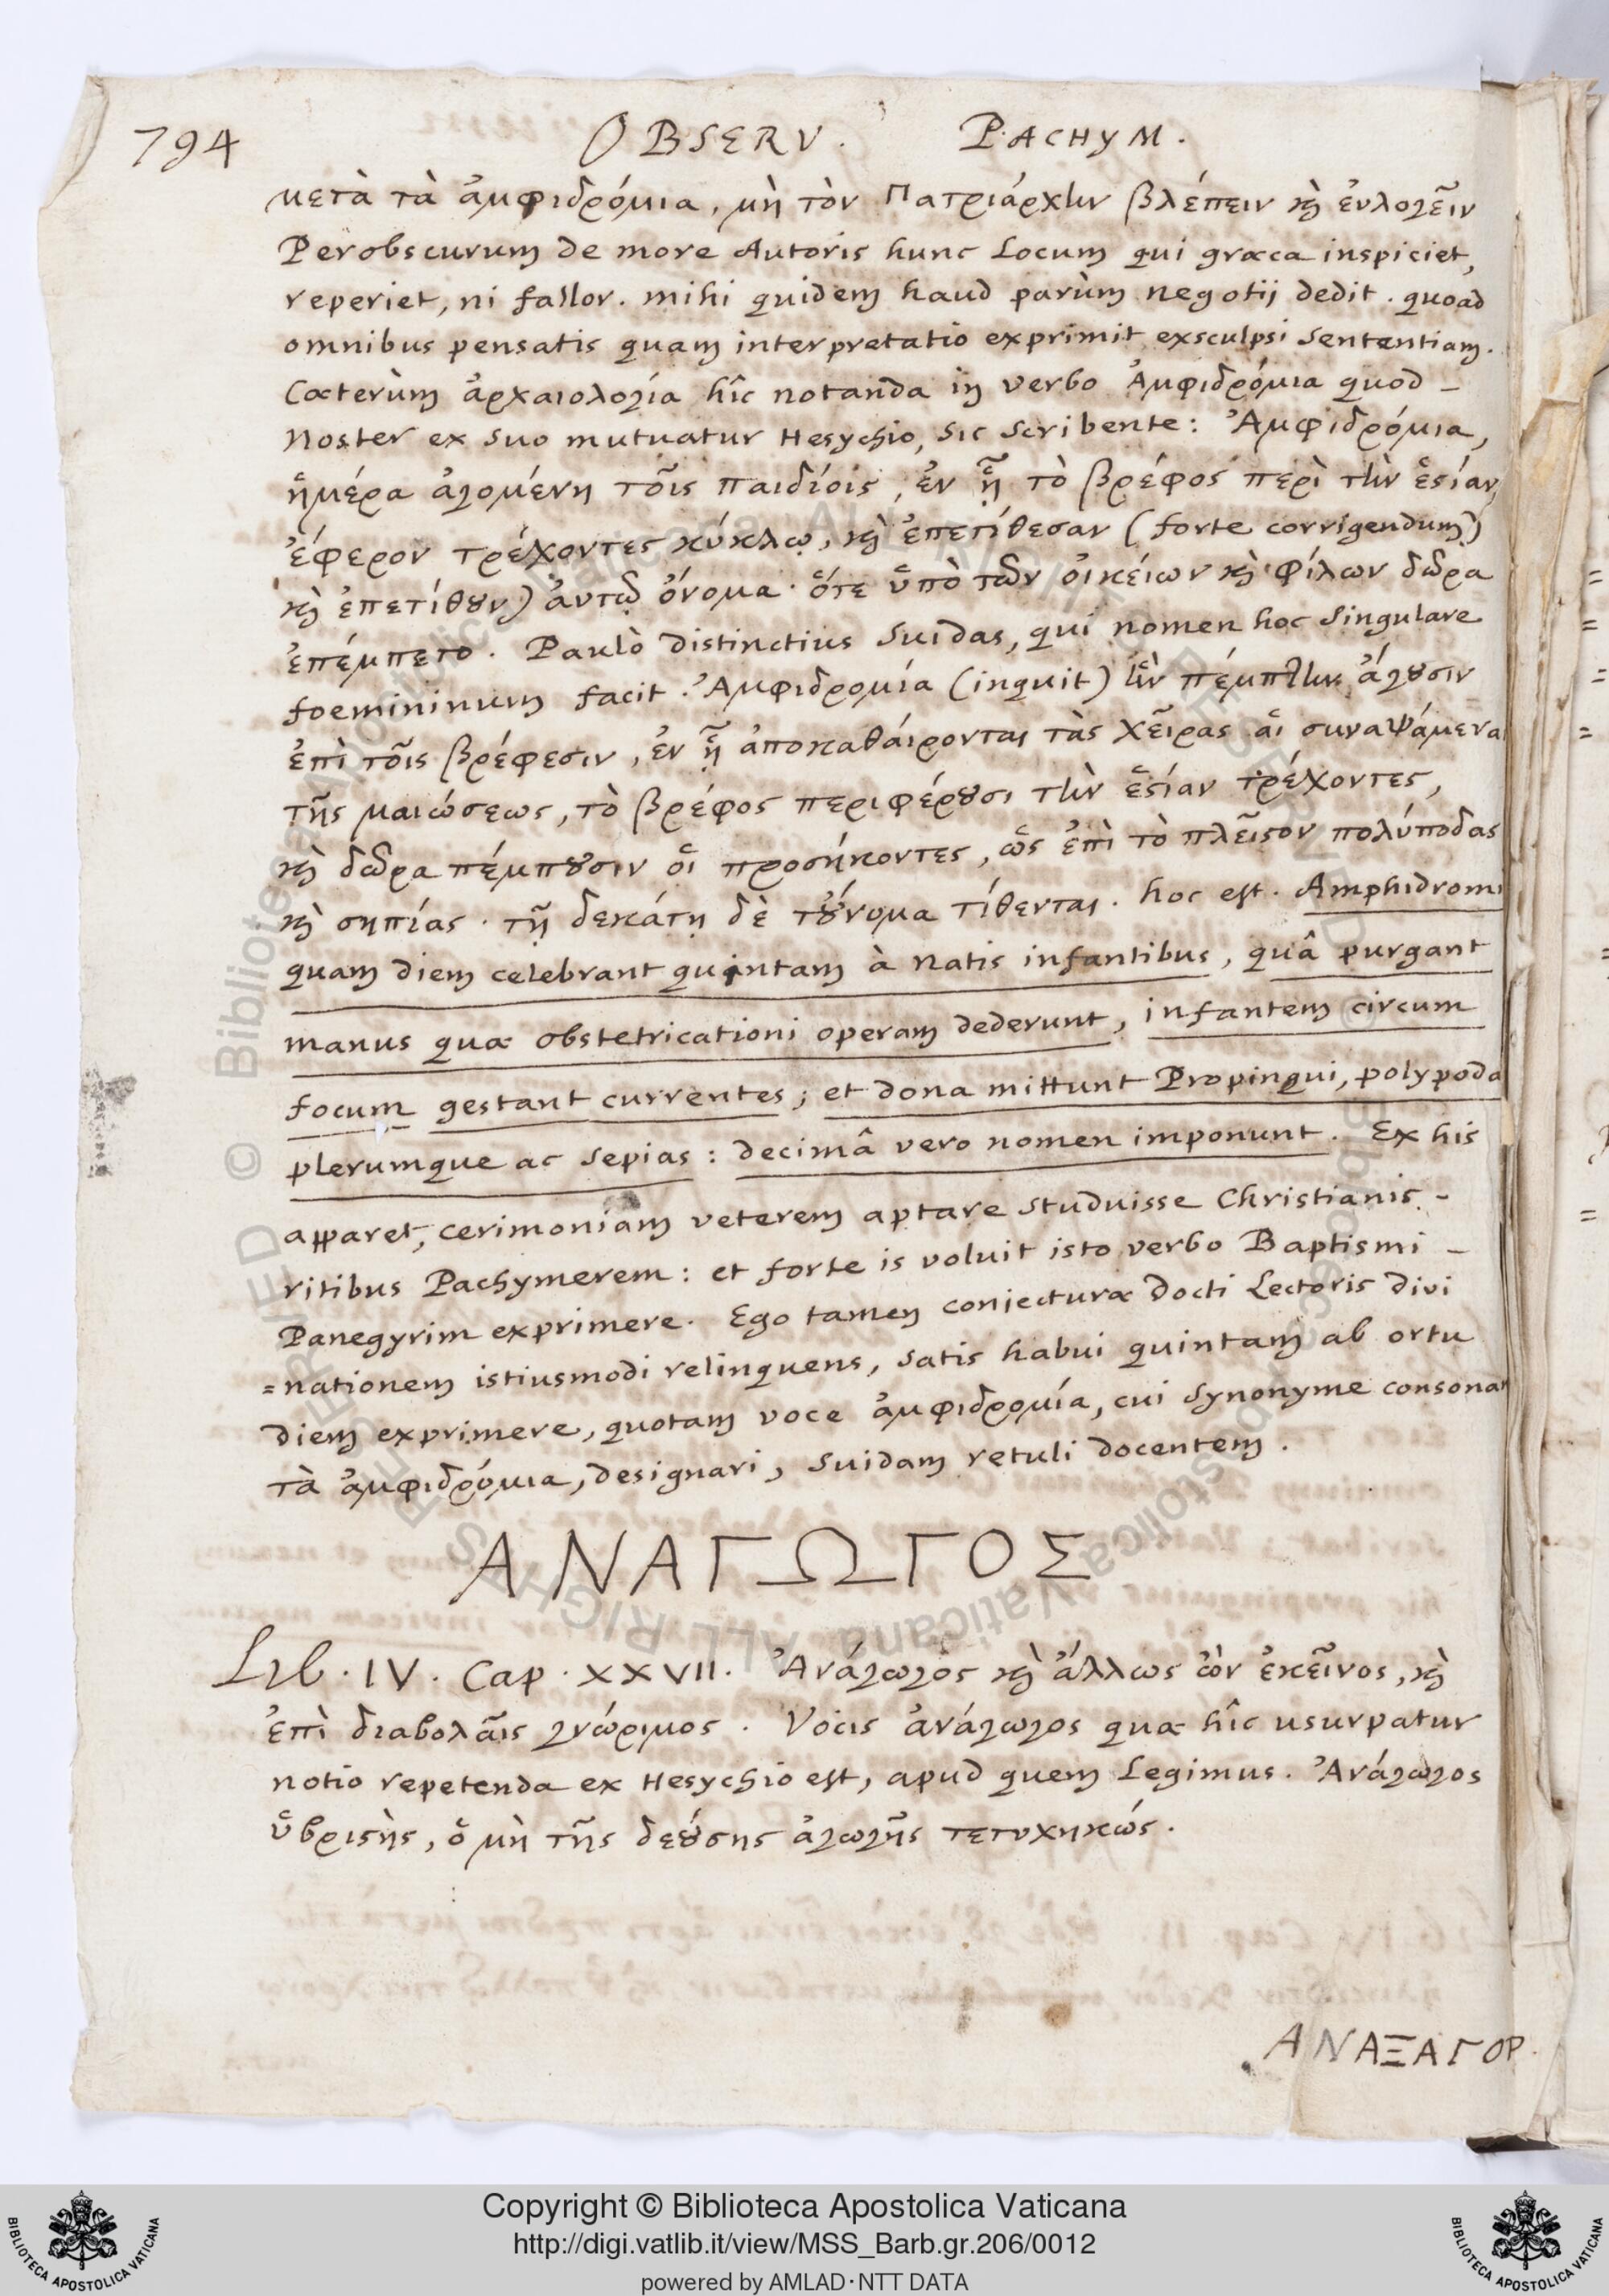 794 OBSERV. PACHYM.
μετὰ τὰ ἀμφιδρόμια, μὴ τὸν Πατριάρχην βλέπειν καὶ ἐυλογεῖν
Perobscurum de more Autoris hunc Locum qui græca inspiciet,
reperiet, ni fallor. mihi quidem haud parùm negotij dedit. quoad
omnibus pensatis quam interpretatio exprimit exsculpsi Sententiam.
Cæterùm ἀρχαιολογία hîc notanda in verbo Ἀμφιδρόμια quod -
Noster ex suo mutuatur Hesychio, sic scribente: Ἀμφιδρόμια,
ἡμέρα ἀγομένη τοῖς παιδίοις, ἐν ᾗ τὸ βρέφος περὶ τὴν ἑστίαν
ἔφερον τρέχοντες κύκλῳ, καὶ ἐπετίθεσαν (forte corrigendum)
καὶ ἐπετίθουν) ἀυτῷ ὄνομα. ὅτε ὑπὸ τῶν ὀικείων καὶ φίλων δῶρα
ἐπέμπετο. Paulò distinctius Suidas, qui nomen hoc Singulare
foemininum facit. Ἀμφιδρομία (inquit) ἣν πέμπτην ἄγουσιν
ἐπὶ τοῖς βρέφεσιν, ἐν ᾗ ἀποκαθάιρονται τὰς χεῖρας αἱ συναψάμεναι
τῆς μαιώσεως, τὸ βρέφος περιφέρουσι τὴν ἑστίαν τρέχοντες,
καὶ δῶρα πέμπουσιν οἱ προσήκοντες, ὡς ἐπὶ τὸ πλεῖστον πολύποδας
καὶ σηπίας. τῇ δεκάτῃ δὲ τοὔνομα τίθενται. hoc est. Amphidromi
quam diem celebrant quintam à natis infantibus, quâ purgant
manus quæ obstetricationi operam dederunt, infantem circum
focum gestant currentes; et dona mittunt Propinqui, polypoda
plerumque ac sepias: decimâ vero nomen imponunt. Ex his
apparet, cerimoniam veterem aptare studuisse Christianis -
ritibus Pachymerem: et forte is voluit isto verbo Baptismi -
Panegyrim exprimere. Ego tamen conjecturæ docti Lectoris divi
=nationem istiusmodi relinquens, satis habui quintam ab ortu
diem exprimere, quotam voce ἀμφιδρομία, cui synonyme consonat
τὰ ἀμφιδρόμια, designari, Suidam retuli docentem.
ΑΝΑΓΩΓΟΣ
Lib. IV. Cap. XXVII. Ἀνάγωγος καὶ ἄλλως ὢν ἐκεῖνος, καὶ
ἐπὶ διαβολαῖς γνώριμος. Vocis ἀνάγωγος quæ hîc usurpatur
notio repetenda ex Hesychio est, apud quem Legimus. Ἀνάγωγος
ὑβριστὴς, ὁ μὴ τῆς δεούσης ἀγωγῆς τετυχηκώς.
ΑΝΑΞΑΓΟΡ.
Copyright © Biblioteca Apostolica Vaticana
http://digi.vatlib.it/view/MSS_Barb.gr.206/0012
powered by AMLAD·NTT DATA
BIBLIOTECA APOSTOLICA VATICANA
BIBLIOTECA APOSTOLICA VATICANA